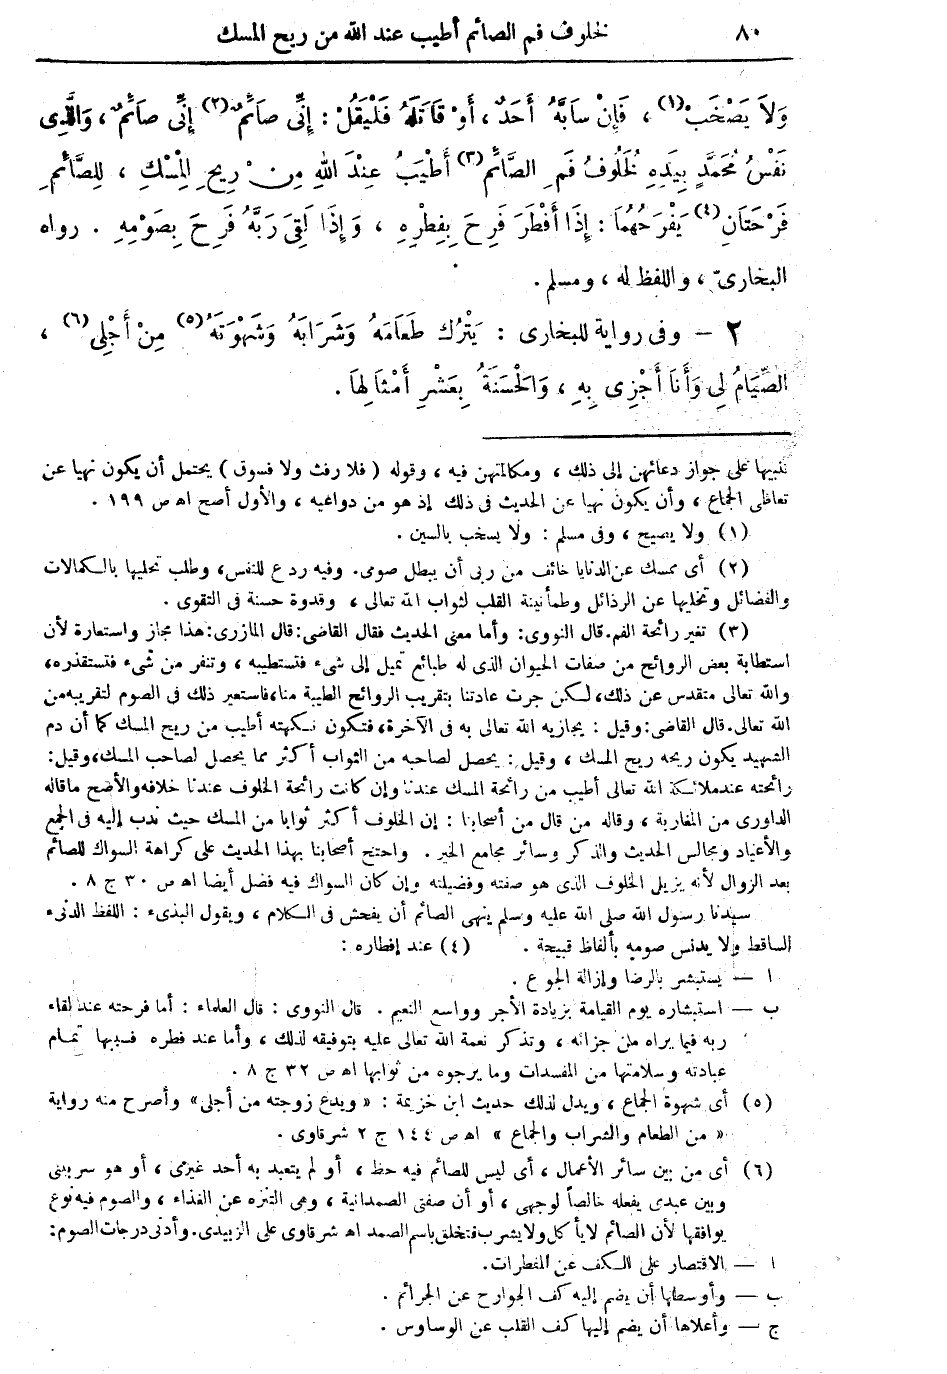 ٨٠ لخلوف فم الصائم أطيب عند الله من ريح المسك
وَلاَ يَصْخَبْ(١) ، فَإِنْ سَابَّهُ أَحَدٌ ، أَوْ قَاتَلَهُ فَلْيَقُلْ : إِنِّى صَائِمٌ(٢) إِنِّى صَائِمٌ ، وَالَّذِى
نَفْسُ مُحَمَّدٍ بِيَدِهِ لَخُلُوفُ فَمِ الصَّائِمِ(٣) أَطْيَبُ عِنْدَ اللهِ مِنْ رِيحِ الْمِسْكِ ، لِلصَّائِمِ
فَرْحَتَانِ(٤) يَفْرَحُهُمَا : إِذَا أَفْطَرَ فَرِحَ بِفِطْرِهِ ، وَإِذَا لَقِىَ رَبَّهُ فَرِحَ بِصَوْمِهِ . رواه
البخارىّ ، واللفظ له ، ومسلم .
٢ – وفى رواية للبخارى : يَتْرُكُ طَعَامَهُ وَشَرَابَهُ وَشَهْوَتَهُ(٥) مِنْ أَجْلِى(٦) ،
الصِّيَامُ لِى وَأَنَا أَجْزِى بِهِ ، وَالْحَسَنَةُ بِعَشْرِ أَمْثَالِهَا .
تنبيها على جواز دعائهن إلى ذلك ، ومكالمتهن فيه ، وقوله ( فلا رفث ولا فسوق ) يحتمل أن يكون نهيا عن
تعاطى الجماع ، وأن يكون نهيا عن الحديث فى ذلك إذ هو من دواعيه ، والأول أصح اه ص ١٩٩ .
(١) ولا يصيح ، وفى مسلم : ولا يسخب بالسين .
(٢) أى ممسك عن الدنايا خائف من ربى أن يبطل صومى. وفيه ردع للنفس، وطلب تحليها بالكمالات
والفضائل وتخليها عن الرذائل وطمأنينة القلب لثواب الله تعالى ، وقدوة حسنة فى التقوى .
(٣) تغير رائحة الفم.قال النووى: وأما معنى الحديث فقال القاضى:قال المازرى:هذا مجاز واستعارة لأن
استطابة بعض الروائح من صفات الحيوان الذى له طبائع تميل إلى شىء فتستطيبه ، وتنفر من شىء فتستقذره،
والله تعالى متقدس عن ذلك، لكن جرت عادتنا بتقريب الروائح الطيبة منا،فاستعير ذلك فى الصوم لتقريبه من
الله تعالى.قال القاضى:وقيل : يجازيه الله تعالى به فى الآخرة، فتكون نكهته أطيب من ريح المسك كما أن دم
الشهيد يكون ريحه ريح المسك ، وقيل : يحصل لصاحبه من الثواب أكثر مما يحصل لصاحب المسك،وقيل:
رائحته عند ملائكة الله تعالى أطيب من رائحة المسك عندنا وإن كانت رائحة الخلوف عندنا خلافه والأصح ماقاله
الداورى من المغاربة ، وقاله من قال من أصحابنا : إن الخلوف أكثر ثوابا من المسك حيث ندب إليه فى الجمع
والأعياد ومجالس الحديث والذكر وسائر مجامع الخير . واحتج أصحابنا بهذا الحديث على كراهة السواك للصائم
بعد الزوال لأنه يزيل الخلوف الذى هو صفته وفضيلته وإن كان السواك فيه فضل أيضا اه ص ٣٠ ج ٨ .
سيدنا رسول الله صلى الله عليه وسلم ينهى الصائم أن يفحش فى الكلام ، ويقول البذىء : اللفظ الدنىء
الساقط ولا يدنس صومه بألفاظ قبيحة . (٤) عند إفطاره :
ا – يستبشر بالرضا وإزالة الجوع .
ب – استبشاره يوم القيامة بزيادة الأجر وواسع النعيم . قال النووى : قال العلماء : أما فرحته عند لقاء
ربه فيما يراه من جزائه ، وتذكر نعمة الله تعالى عليه بتوفيقه لذلك ، وأما عند فطره فسببها تمام
عبادته وسلامتها من المفسدات وما يرجوه من ثوابها اه ص ٣٢ ج ٨ .
(٥) أى شهوة الجماع ، ويدل لذلك حديث ابن خزيمة : « ويدع زوجته من أجلى» وأصرح منه رواية
« من الطعام والشراب والجماع » اه ص ١٤٤ ج ٢ شرقاوى .
(٦) أى من بين سائر الأعمال ، أى ليس للصائم فيه حظ ، أو لم يتعبد به أحد غيرى ، أو هو سر بينى
وبين عبدى يفعله خالصاً لوجهى ، أو أن صفتى الصمدانية ، وهى التنزه عن الغذاء ، والصوم فيه نوع
يوافقها لأن الصائم لا يأكل ولا يشرب فتخلق باسم الصمد اه شرقاوى على الزبيدى.وأدنى درجات الصوم:
ا – الاقتصار على الكف عن المفطرات.
ب – وأوسطها أن يضم إليه كف الجوارح عن الجرائم .
ج – وأعلاها أن يضم إليها كف القلب عن الوساوس .